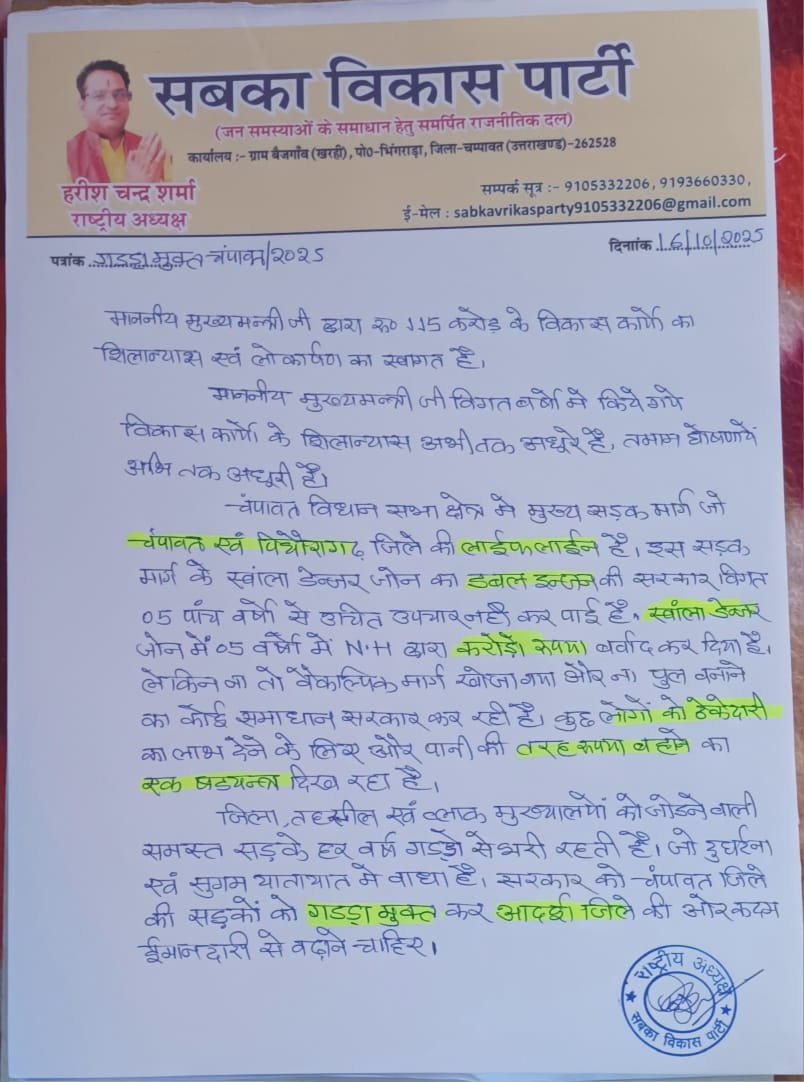 सबका विकास पार्टी
(जन समस्याओं के समाधान हेतु समर्पित राजनीतिक दल)
कार्यालय :- ग्राम बैजगाँव (खरही), पो0-भिंगराड़ा, जिला-चम्पावत (उत्तराखण्ड)-262528
हरीश चन्द्र शर्मा
राष्ट्रीय अध्यक्ष
सम्पर्क सूत्र :- 9105332206, 9193660330,
ई-मेल : sabkavrikasparty9105332206@gmail.com
पत्रांक गडडा मुक्त चंपावत/2025
दिनांक 16/10/2025
माननीय मुख्यमन्त्री जी द्वारा रू० 115 करोड़ के विकास कार्यो का
शिलान्यास एवं लोकार्पण का स्वागत है।
माननीय मुख्यमन्त्री जी विगत वर्षो मे किये गये
विकास कार्यो के शिलान्यास अभी तक अधूरे है, तमाम घोषणायें
अभि तक अधूरी है।
चंपावत विधान सभा क्षेत्र मे मुख्य सड़क मार्ग जो
चंपावत एवं पिथौरागढ़ जिले की लाईफलाईन है। इस सड़क
मार्ग के स्वांला डेन्जर जोन का डबल इन्जन की सरकार विगत
05 पांच वर्षो से उचित उपचार नही कर पाई है। स्वांला डेन्जर
जोन में 05 वर्षो में N.H द्वारा करोड़ो रूपया बर्वाद कर दिया है।
लेकिन ना तो वैकल्पिक मार्ग खोजा गया और ना पुल बनाने
का कोई समाधान सरकार कर रही है। कुछ लोगों को ठेकेदारी
का लाभ देने के लिए और पानी की तरह रूपया बहाने का
एक षडयन्त्र दिख रहा है।
जिला, तहसील एवं ब्लाक मुख्यालयों को जोडने वाली
समस्त सड़के हर वर्ष गडड़ो से भरी रहती है। जो दुर्घटना
एवं सुगम यातायात मे वाधा है। सरकार को चंपावत जिले
की सड़कों को गडडा मुक्त कर आदर्श जिले की ओर कदम
ईमानदारी से बढ़ाने चाहिए।
राष्ट्रीय अध्यक्ष
सबका विकास पार्टी